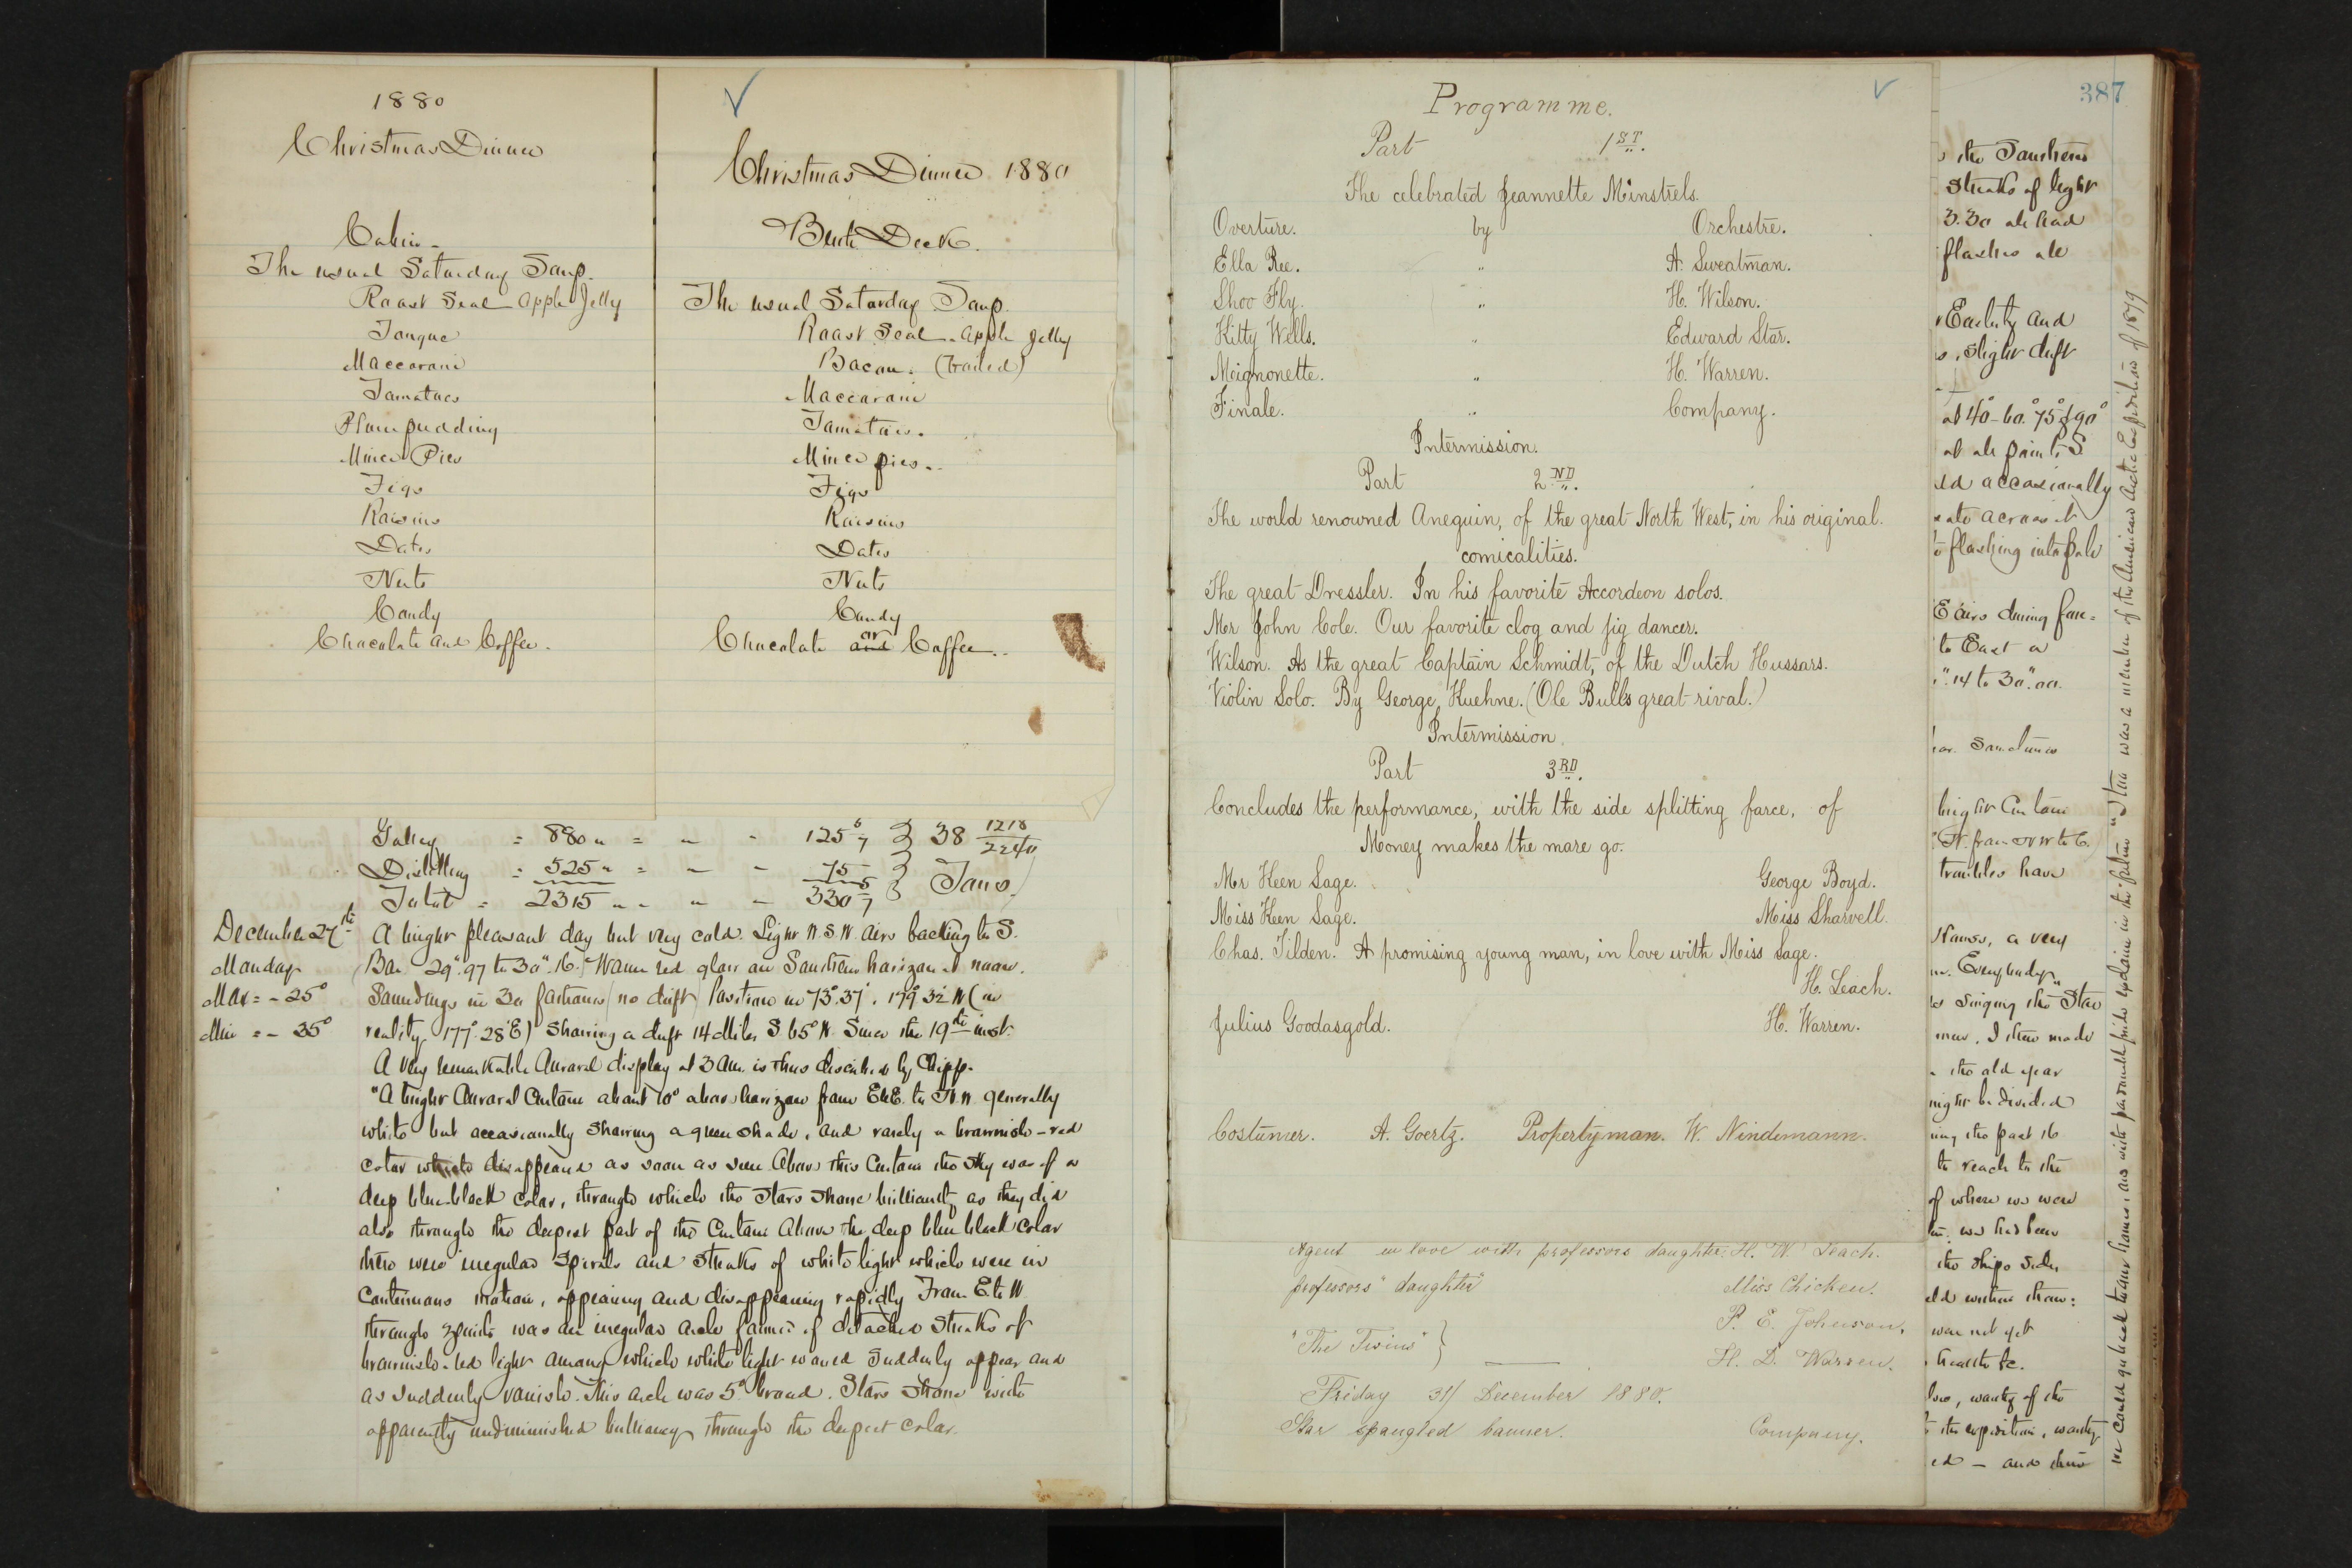 1880
Christmas Dinner
Cabin -
The usual Saturday Soup.
Roast Seal - Apple Jelly
Tongue
Maccaroni
Tomatoes
Plum pudding
Mince Pies
Figs
Raisins
Dates
Nuts
Candy
Chocolate and Coffee.
Christmas Dinner 1880
Berth Deck.
The usual Saturday Soup.
Roast Seal - Apple Jelly
Bacon. (boiled)
Maccaroni
Tomatoes.
Mince pies.
Figs
Raisins
Dates
Nuts
Candy
Chocolate and or Coffee.
Galley = 880 " = " - 125 5/7 } 38 1218/2240
Distilling = 525 " = " - 75 } Tons
Total = 2315 " " " - 330 5/7
December 27th
Monday
Max = - 25°
Min = - 35°
A bright pleasant day but very cold. Light N.S.W. airs backing to S.
Bar 29".97 to 30".16. Warm red glow on Southern horizon at noon.
Soundings in 30 fathoms (no drift) Position in 73°.37', 179°.32' W (in
reality 177°.28' E) Showing a drift 14 Miles S 65° W. Since the 19th inst.
A very remarkable Auroral display at 3 AM. is thus described by Chipp.
"A bright Auroral Curtain about 10° above horizon from to N.W. generally
white but occasionally showing a green shade, and rarely a brownish-red
color which disappeared as soon as seen. Above this Curtain the sky was of a
deep blue-black color, through which the stars shone brilliantly as they did
also through the deepest part of the Curtain. Above the deep blue black color
there were irregular Spirals and Streaks of white light which were in
Continuous motion, appearing and disappearing rapidly. From E to W
through zenith was an irregular arch formed of detached streaks of
brownish-red light among which white light would suddenly appear and
as suddenly vanish. This arch was 5° broad. Stars shone with
apparently undiminished brilliancy through the deepest color.
Programme.
Part 1ST.
The celebrated Jeannette Minstrels.
Overture. by Orchestre.
Ella Ree. " A. Sweatman.
Shoo Fly. " H. Wilson.
Kitty Wells. " Edward Star.
Meignonette. " H. Warren.
Finale. " Company.
Intermission.
Part 2ND.
The world renowned Aneguin, of the great North West, in his original.
comicalities.
The great Dressler. In his favorite Accordeon solos.
Mr John Cole. Our favorite clog and jig dancer.
Wilson. As the great Captain Schmidt, of the Dutch Hussars.
Violin Solo. By George Kuehne. (Ole Bulls great rival.)
Intermission.
Part 3RD.
Concludes the performance, with the side splitting farce, of
Money makes the mare go.
Mr Keen Sage. George Boyd.
Miss Keen Sage. Miss Sharvell.
Chas. Tilden. A promising young man, in love with Miss Sage.
H. Leach.
Julius Goodasgold. H. Warren.
Costumer. A. Goertz. Propertyman. W. Nindemann.
Agent in love with professors daughter. H. W. Leach.
professors' daughter Miss Chicken.
"The Twins" } P. E. Johnson.
H. D. Warren.
Friday 31/ December 1880.
Star spangled banner. Company.
387
the Southern
Streaks of light
3.30 ahead
flashes
Easterly and
slight drift
at 40-60° 75° & 90°
at all points S.
ed occasionally
across it
flashing into pale
E airs during
to East
14 to 30".00.
Sometimes
bright Curtain
N. from NW to
troubles have
a very
Everybody
singing the "Star
I then made
the old year
might be divided
the past 16
to reach to the
of where we were
we had been
the ships side,
were not yet
health &c.
the expedition, worthy
ed - and